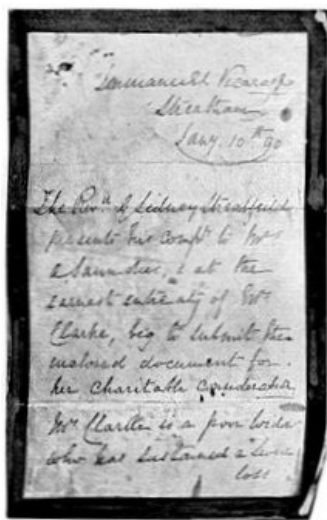 Immanuel Vicarage
Streatham
Jany. 10th 90
The Revd. G Sidney Streatfeild
presents his compts to Mrs
a Saunders, & at the
earnest entreaty of Mrs
Clarke, beg to submit the
enclosed document for
her charitable consideration
Mrs Clarke is a poor widow
who has sustained a
loss